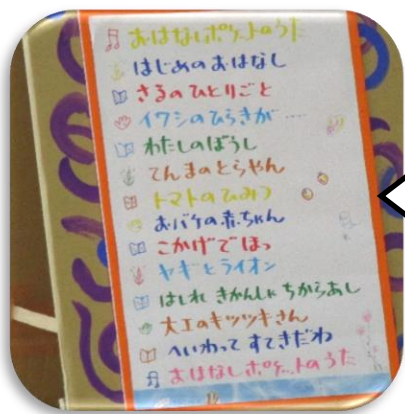 おはなしポケットのうた
はじめのおはなし
さるのひとりごと
イワシのひらきが……
わたしのぼうし
てんまのとらやん
トマトのひみつ
おバケの赤ちゃん
こかげでほっ
ヤギとライオン
はしれ きかんしゃ ちからあし
大工のキツツキさん
へいわって すてきだね
おはなしポケットのうた